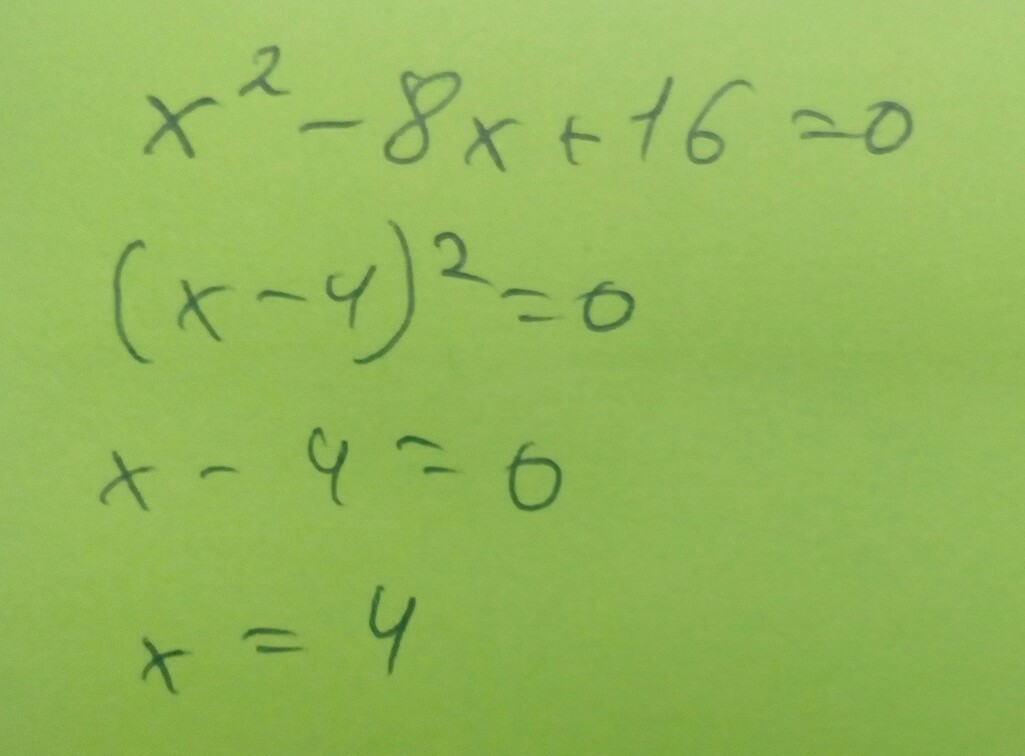 x² - 8x + 16 = 0
(x - 4)² = 0
x - 4 = 0
x = 4